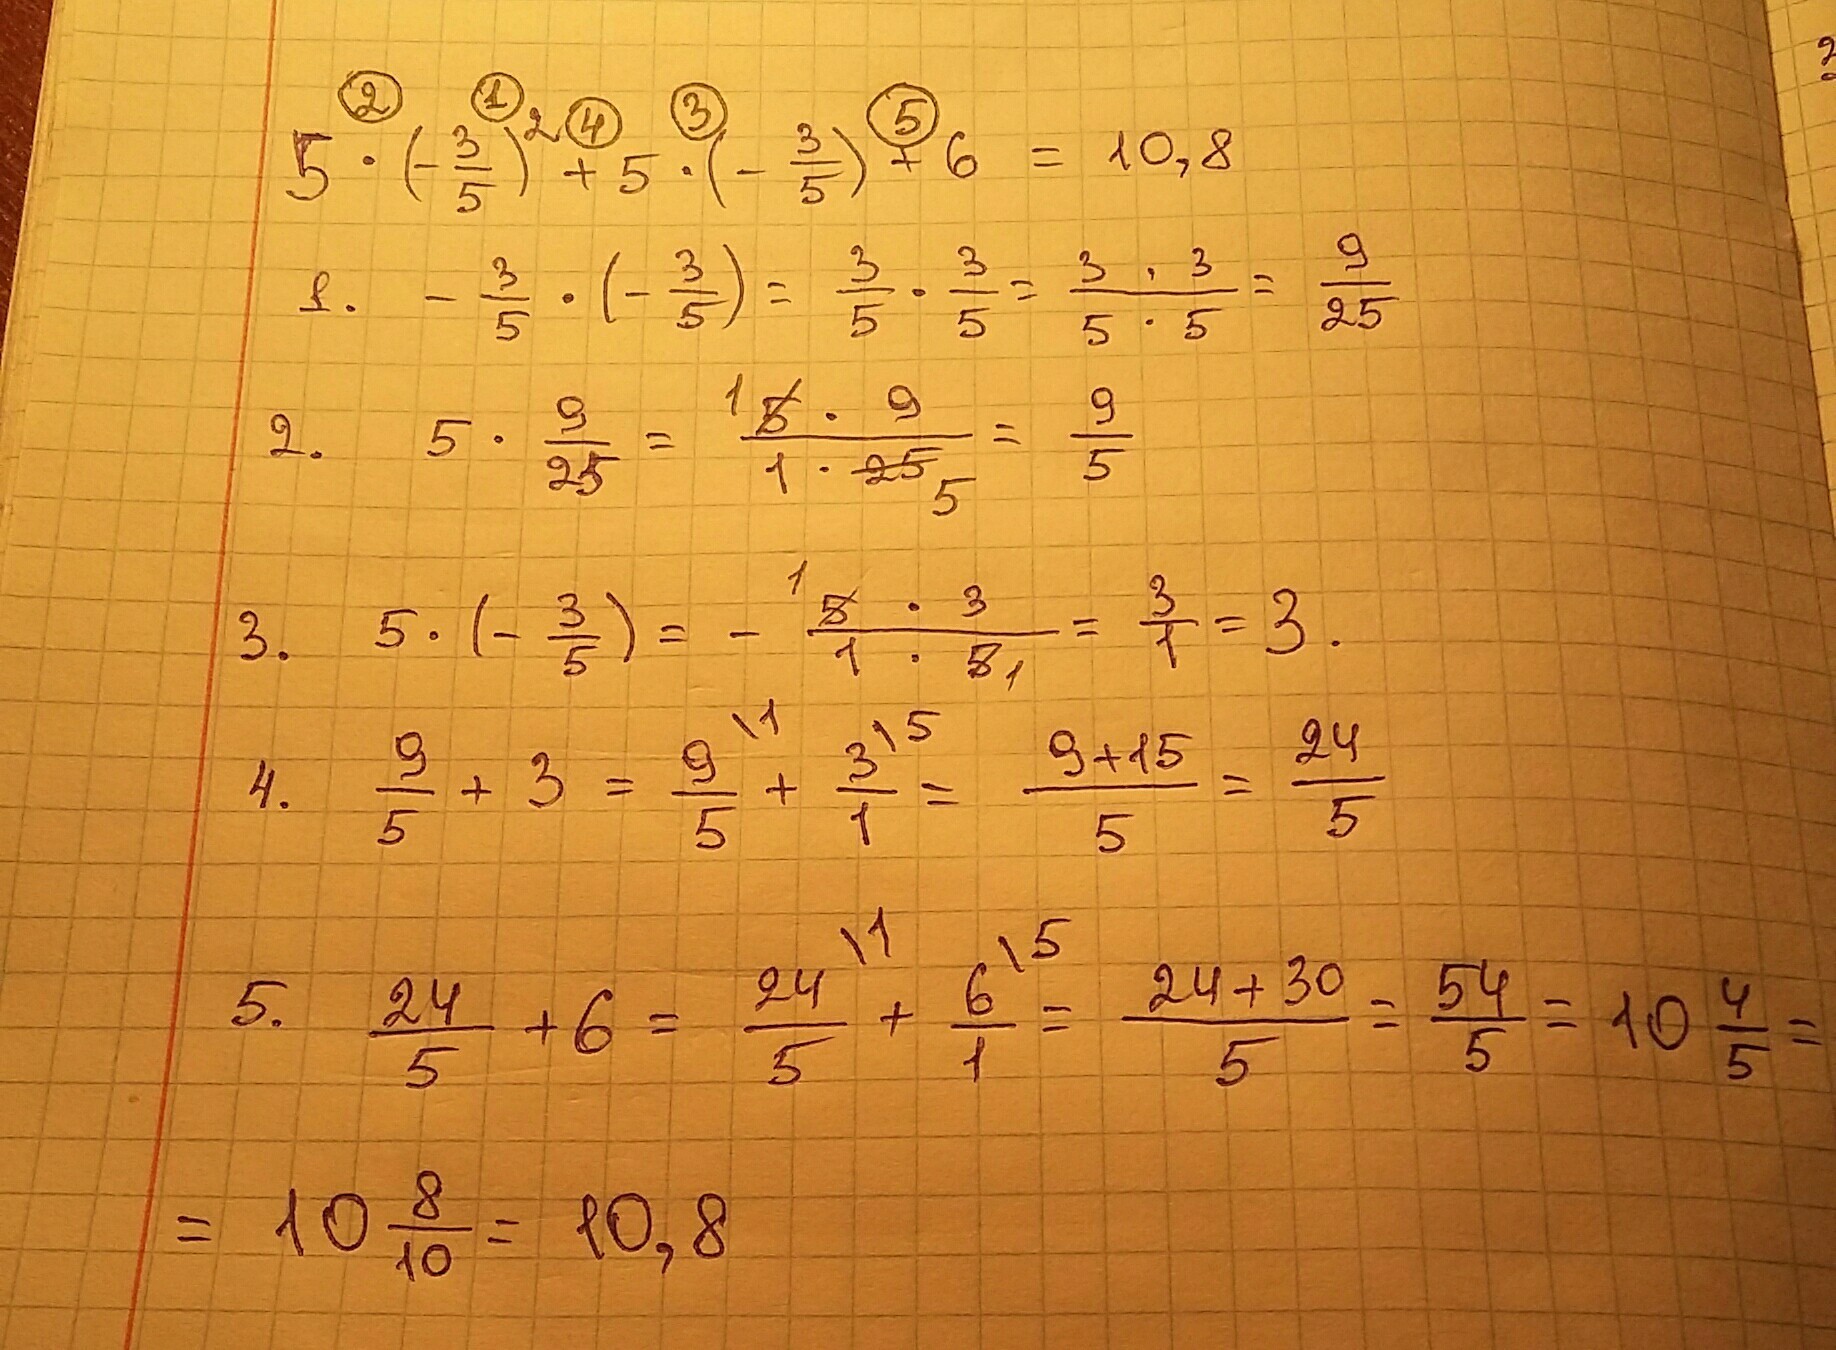 5 · (-3/5)² + 5 · (-3/5) + 6 = 10,8
② ① ④ ③ ⑤
1. -3/5 · (-3/5) = 3/5 · 3/5 = 3 · 3 / 5 · 5 = 9/25
2. 5 · 9/25 = 1 5 · 9 / 1 · 25 5 = 9/5
3. 5 · (-3/5) = - 1 5 · 3 / 1 · 5 1 = 3/1 = 3.
4. 9/5 + 3 = 9/5 \1 + 3/1 \5 = 9+15/5 = 24/5
5. 24/5 + 6 = 24/5 \1 + 6/1 \5 = 24+30/5 = 54/5 = 10 4/5 =
= 10 8/10 = 10,8
2